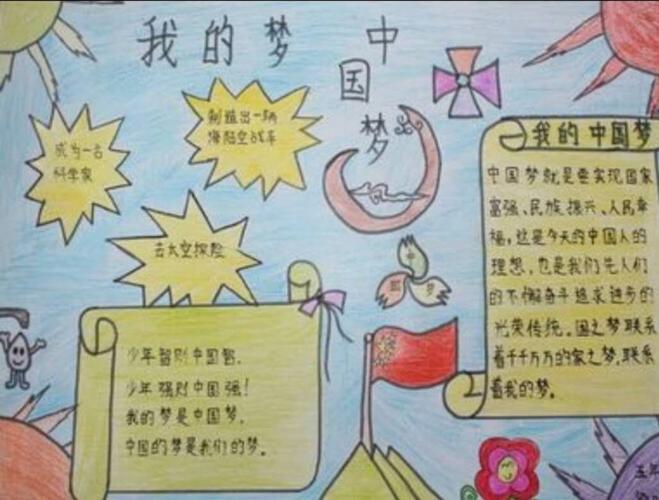 我的梦 中国梦
成为一名
科学家
制造出一辆
海陆空战车
去太空探险
中
国
梦
我的中国梦
中国梦就是要实现国家
富强、民族振兴、人民幸
福,这是今天的中国人的
理想,也是我们先人们
的不懈奋斗追求进步的
光荣传统。国之梦联系
着千千万万的家之梦,联系
着我的梦。
少年智则中国智,
少年强则中国强!
我的梦是中国梦,
中国的梦是我们的梦。
五年